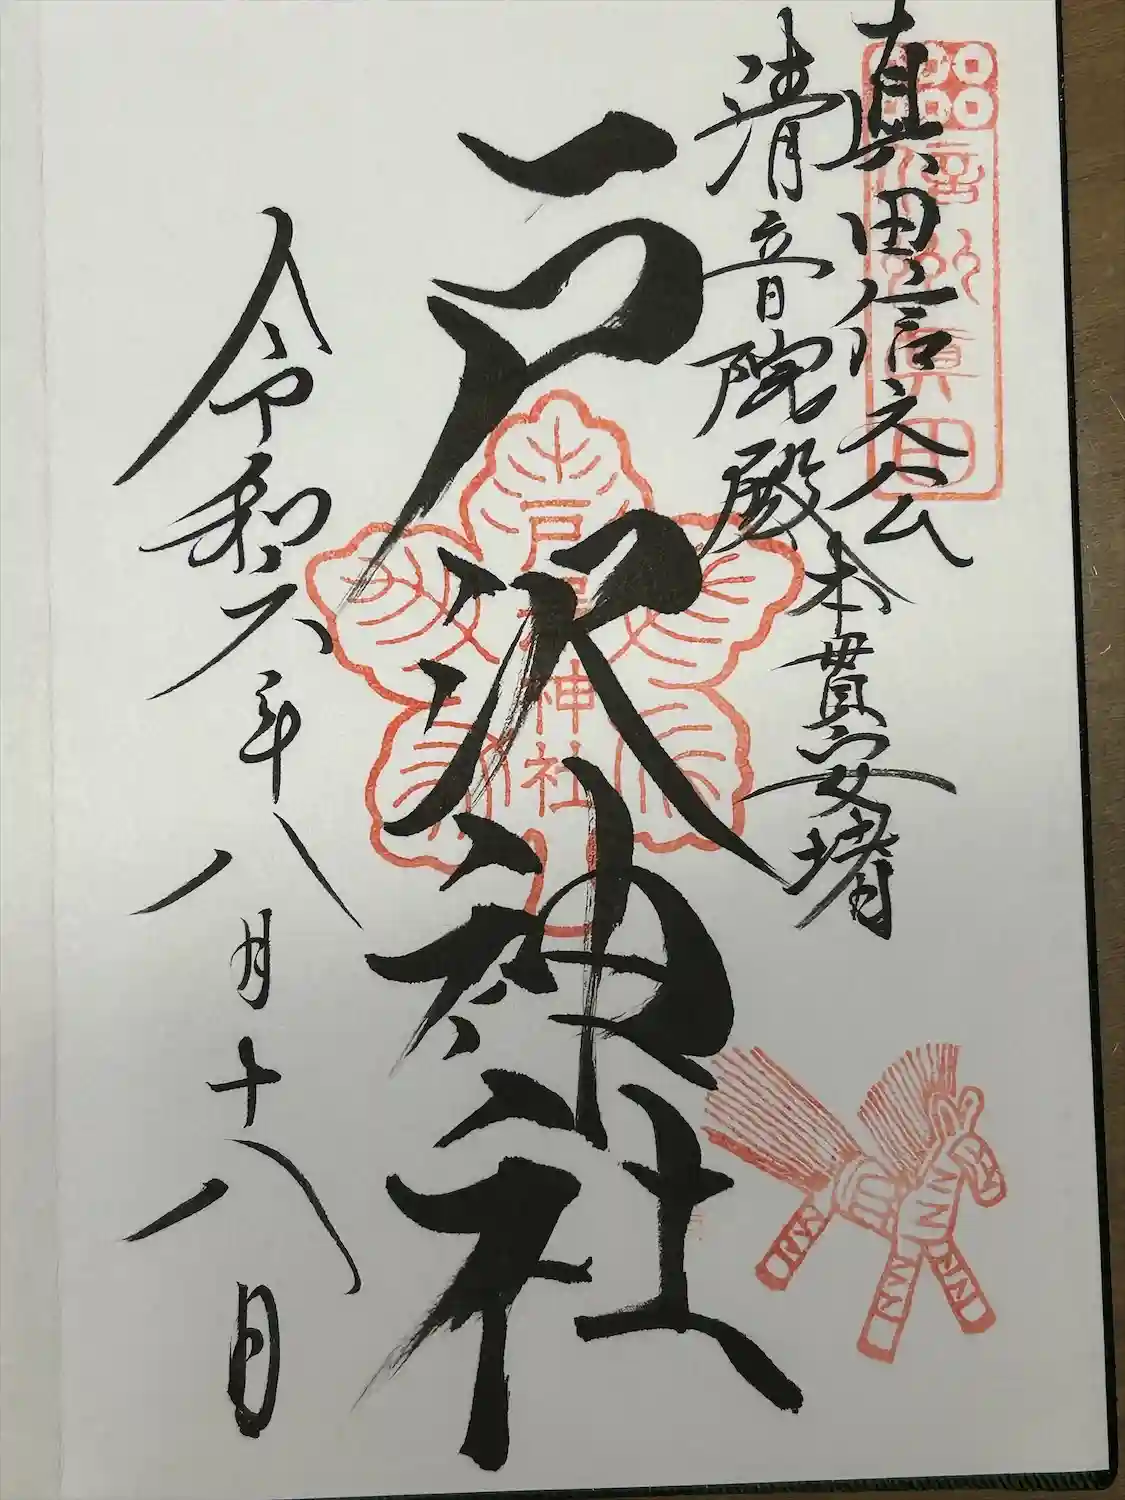 真田信之公
清音院殿
本貫安堵
信州真田
戸沢神社
戸澤神社
令和六年八月十八日